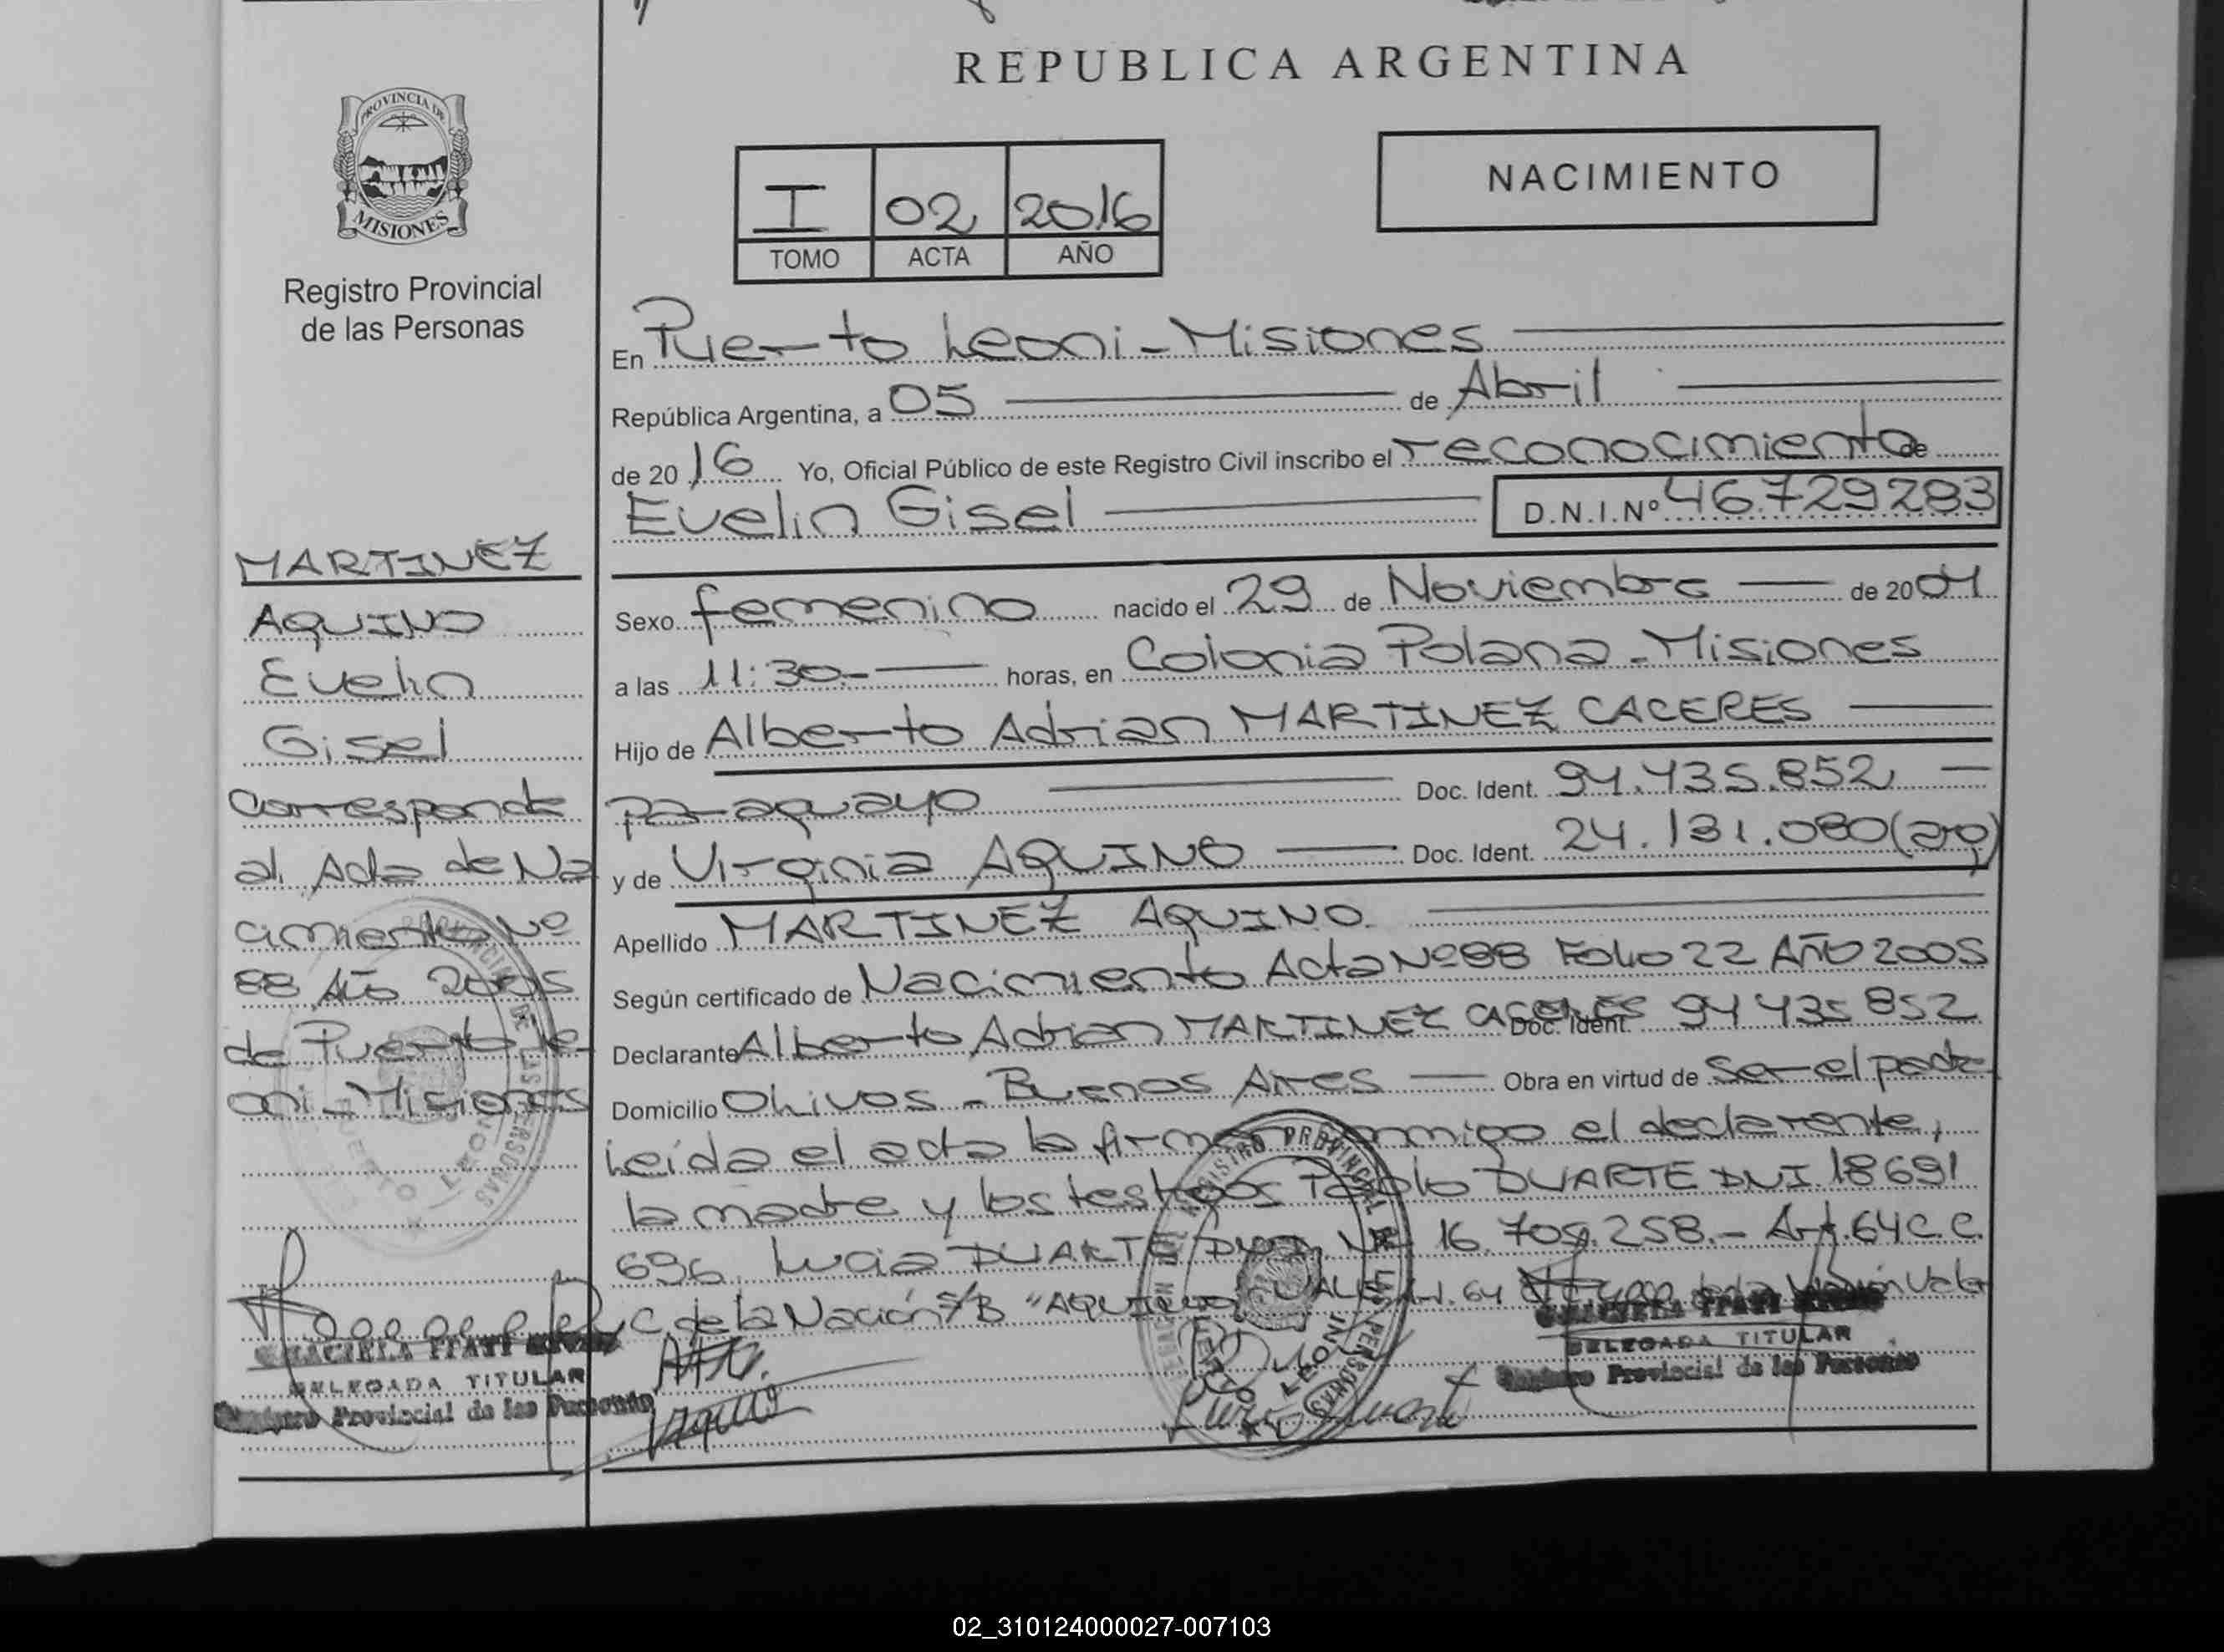 REPUBLICA ARGENTINA
PROVINCIA DE
MISIONES
Registro Provincial
de las Personas
I 02 2016
TOMO ACTA AÑO
NACIMIENTO
En Puerto Leoni - Misiones
República Argentina, a 05 de Abril
de 2016 Yo, Oficial Público de este Registro Civil inscribo el reconocimiento de
Evelin Gisel D.N.I.Nº 46.729283
Sexo femenino nacido el 29 de Noviembre de 2004
a las 11:30.- horas, en Colonia Polana - Misiones
Hijo de Alberto Adrian MARTINEZ CACERES
paraguayo Doc. Ident. 94.435.852
y de Virginia AQUINO Doc. Ident. 24.131.080 (arg)
Apellido MARTINEZ AQUINO.
Según certificado de Nacimiento Acta Nº 88 Folio 22 AÑO 2005
Declarante Alberto Adrian MARTINEZ CACERES Doc. Ident. 94 435 852
Domicilio Olivos - Buenos Aires Obra en virtud de Ser el padre
Leída el acta la firman conmigo el declarante,
la madre y los testigos Pablo DUARTE DNI 18 691
696, Lucia DUARTE 16.705.258.- Art. 64 C.C.
y C de la Nación S/B "AQUINO" VALE Art. 64
MARTINEZ
AQUINO
Evelin
Gisel
Corresponde
al Acta de Na
cimiento Nº
88 Año 2005
de Puerto Le-
oni - Misiones
GRACIELA ITATI
DELEGADA TITULAR
Registro Provincial de las Personas
GRACIELA ITATI
DELEGADA TITULAR
Registro Provincial de las Personas
REGISTRO PROVINCIAL DE LAS PERSONAS
PUERTO LEONI
02_310124000027-007103